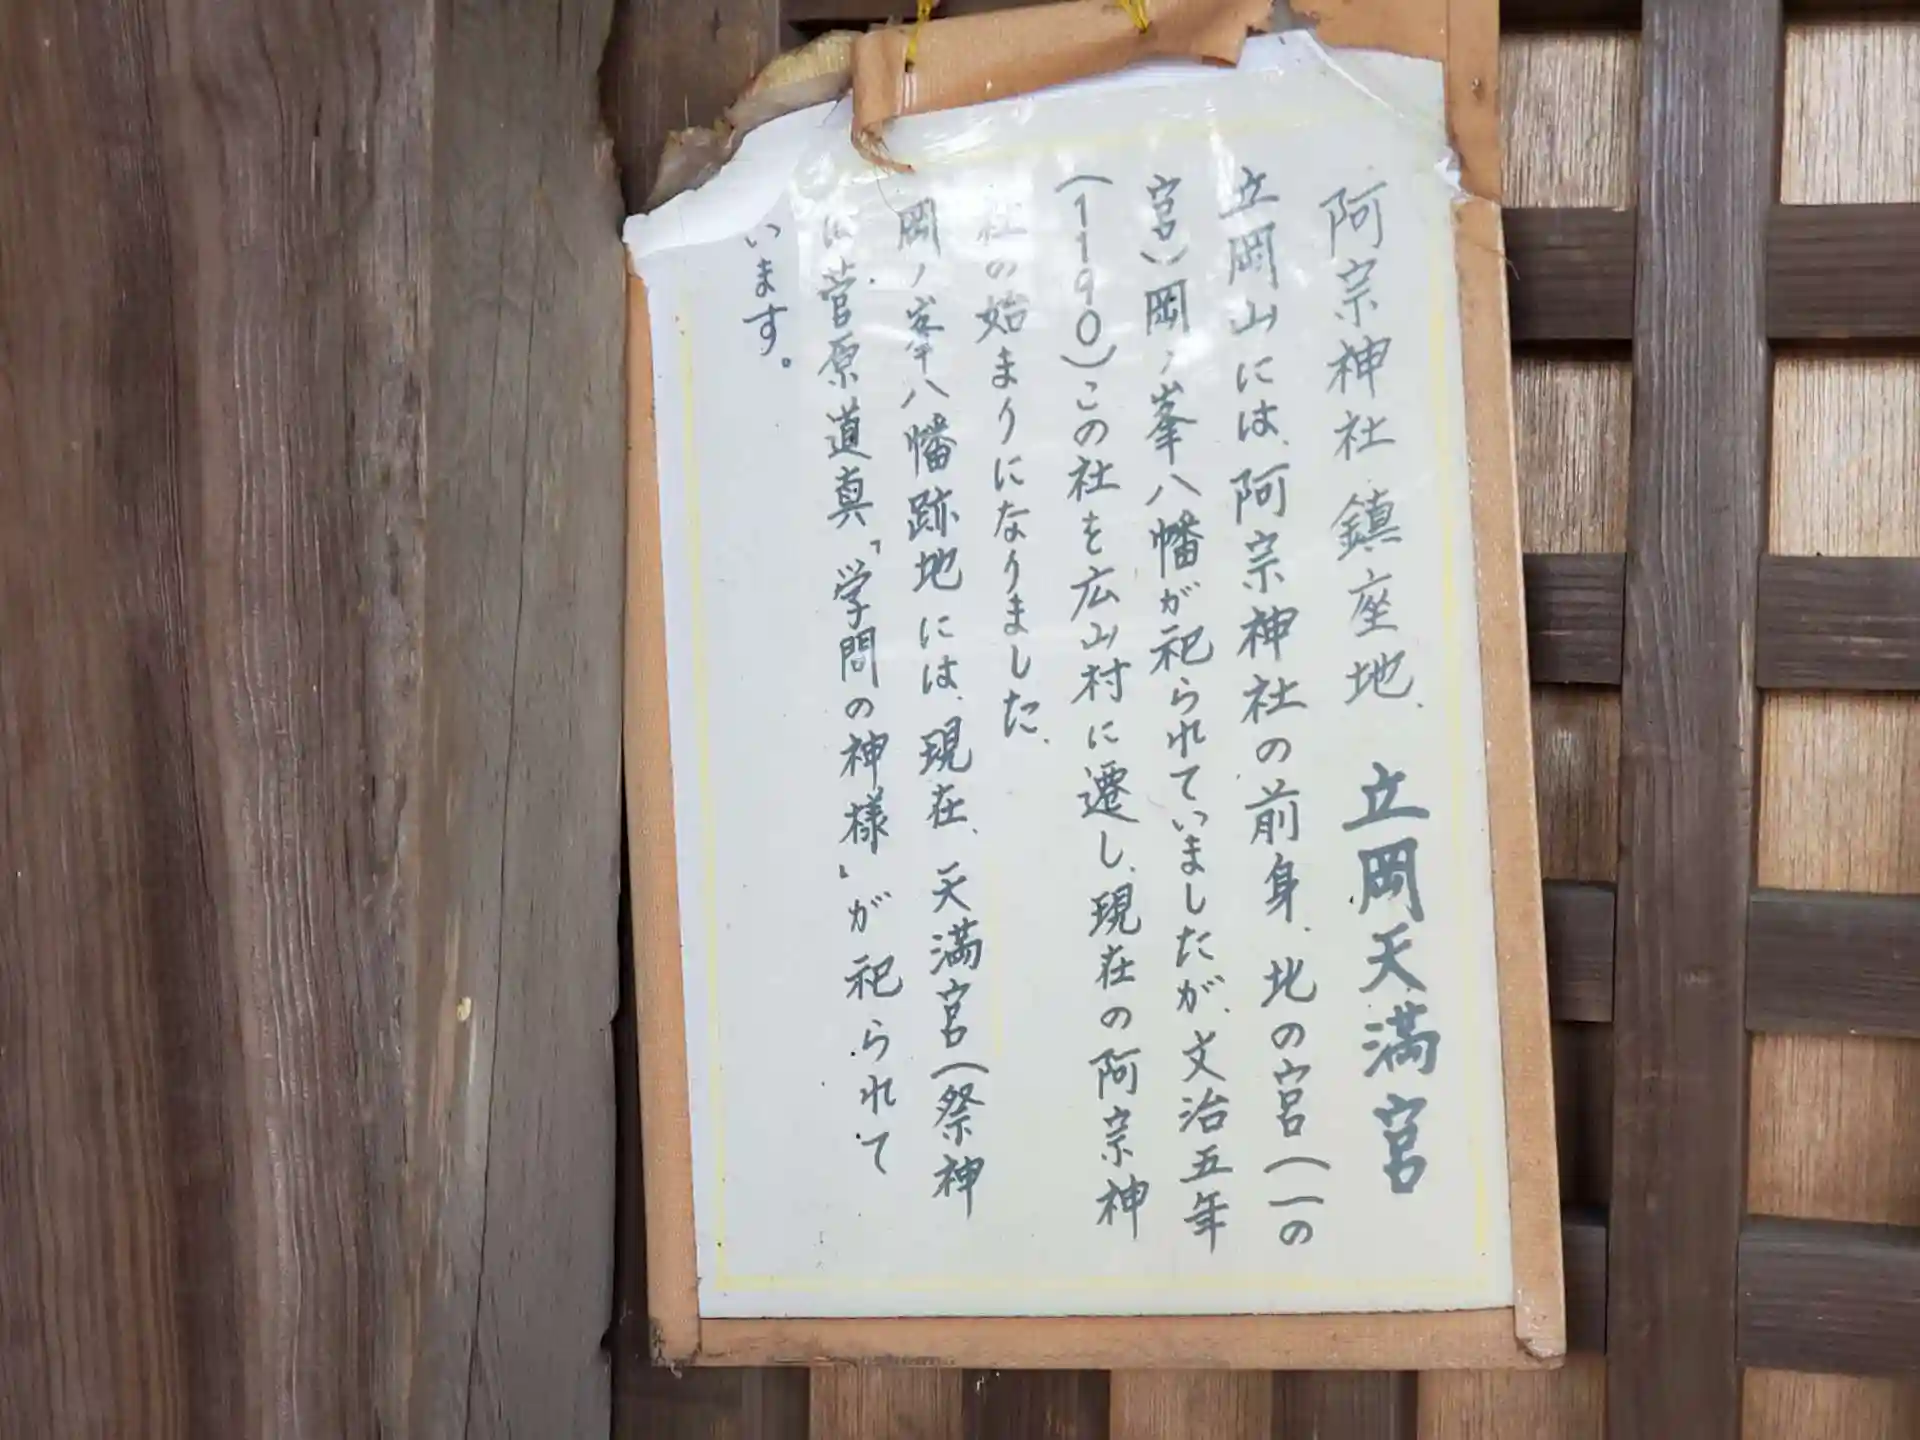 阿宗神社 鎮座地、立岡天満宮
立岡山には、阿宗神社の前身、北の宮(一の
宮)岡ノ峯八幡が祀られていましたが、文治五年
(1190)この社を広山村に遷し、現在の阿宗神
社の始まりになりました、
岡ノ峯八幡跡地には、現在、天満宮(祭神
は菅原道真「学問の神様」が祀られて
います。